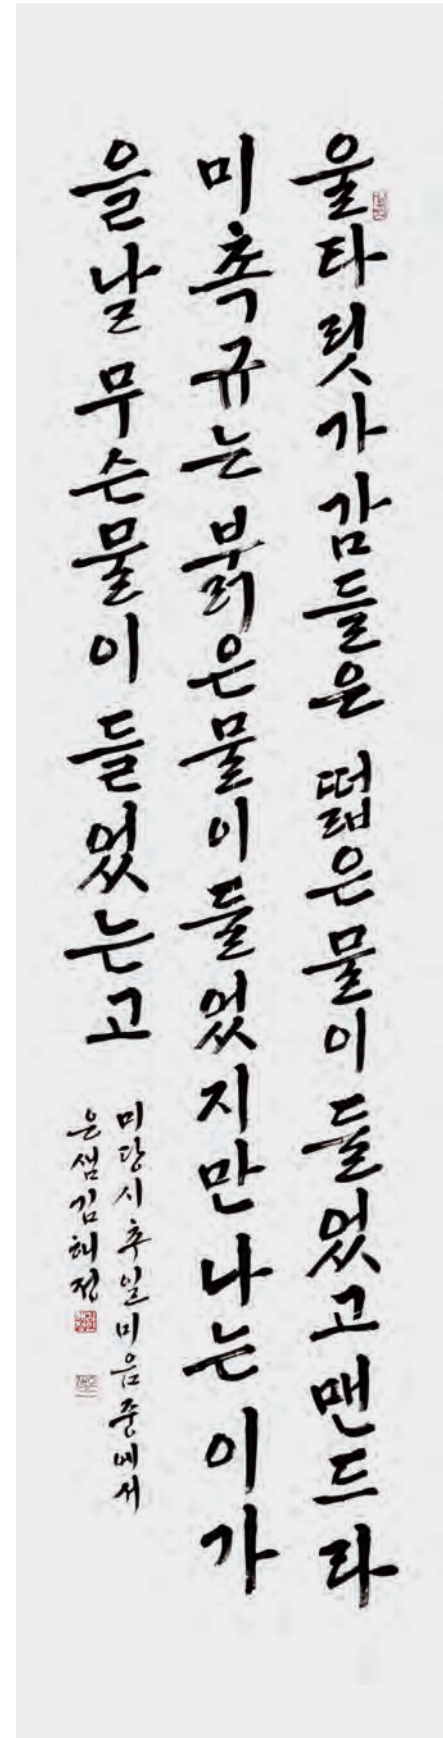 울타릿가 감들은 떫은 물이 들었고 맨드라
미 촉규는 붉은 물이 들었지만 나는 이가
을날 무슨 물이 들었는고
미당시 추일미음 중에서
은샘 김해정